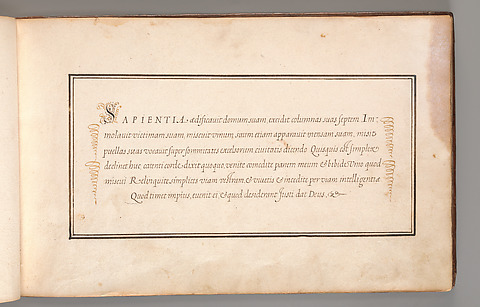 SAPIENTIA ædificauit domum suam, excidit columnas suas septem. Im
molauit victimam suam, miscuit vinum, suum etiam apparauit mensam suam, misit
puellas suas vocauit super summitatis excelsorum ciuitatis dicendo Quisquis est simplex
declinet huc, carenti corde, dixit quoque, venite comedite panem meum & bibite Vino quod
miscui Relinquite simplices viam vestram & viuetis & incedite per viam intelligentiæ
Quod timet impius, eueniet ei, & quod desiderant Justi dat Deus.